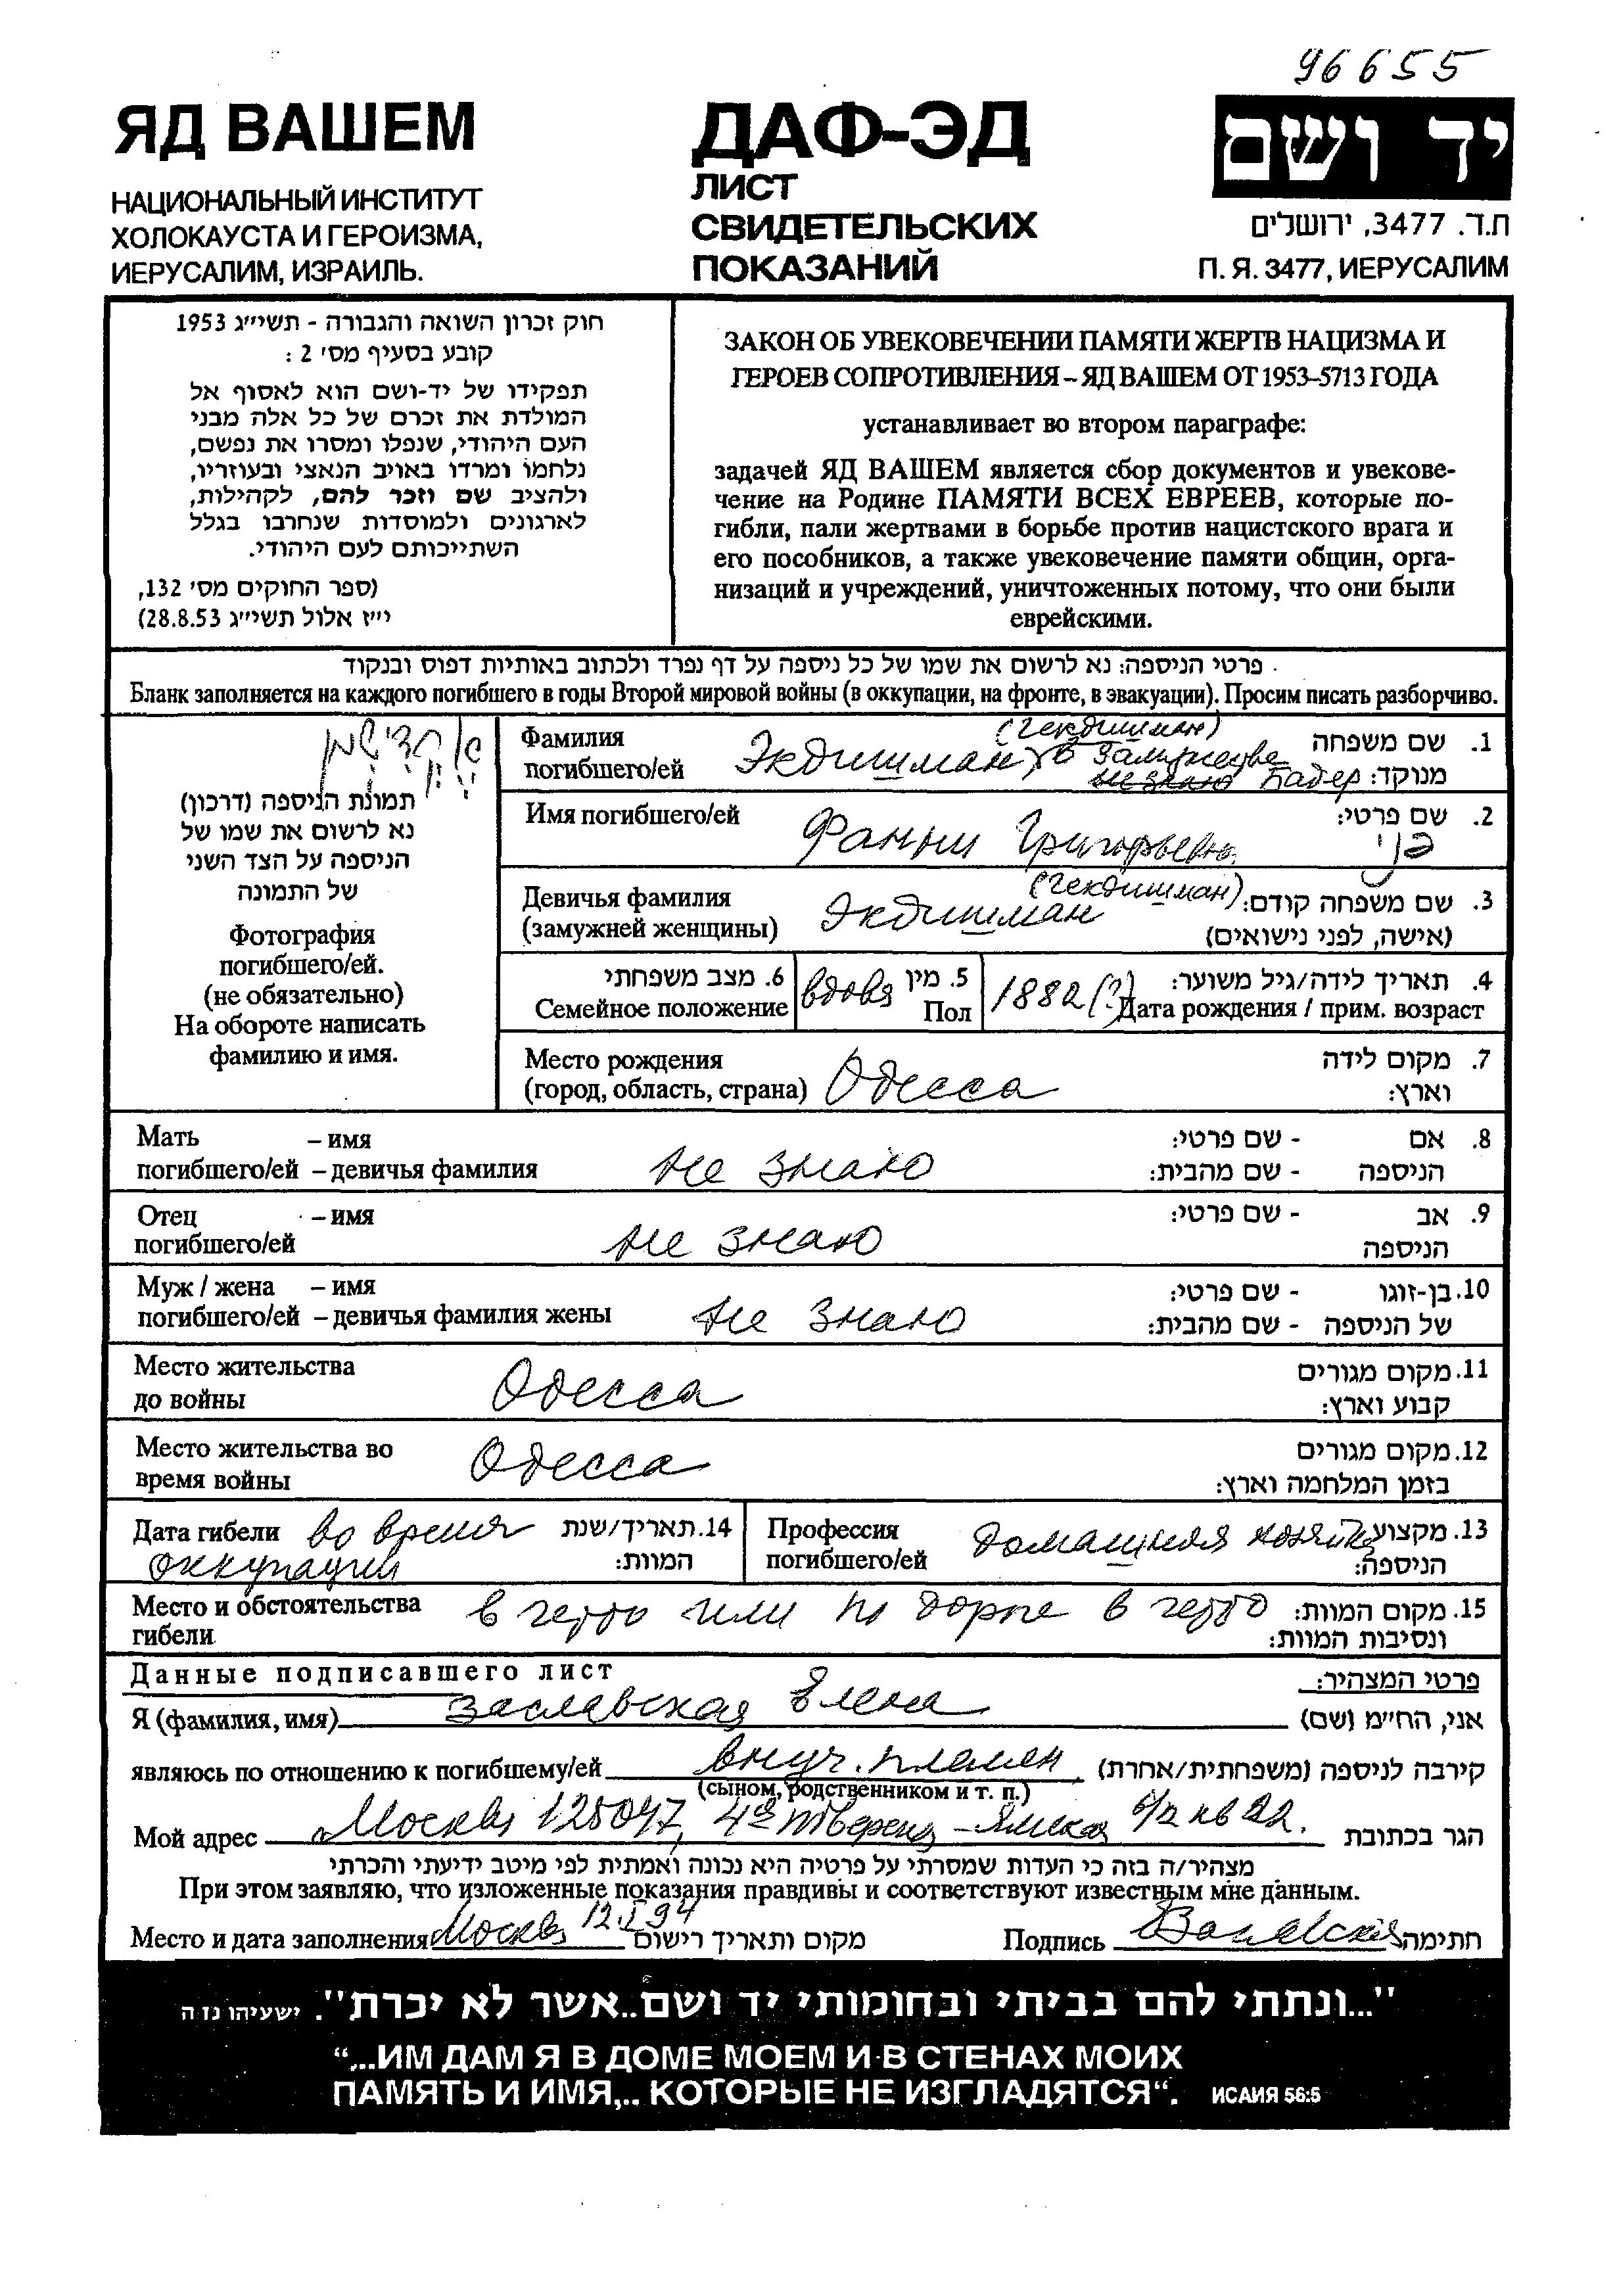 96655
ЯД ВАШЕМ
НАЦИОНАЛЬНЫЙ ИНСТИТУТ
ХОЛОКАУСТА И ГЕРОИЗМА,
ИЕРУСАЛИМ, ИЗРАИЛЬ.
ДАФ-ЭД
ЛИСТ
СВИДЕТЕЛЬСКИХ
ПОКАЗАНИЙ
יד ושם
ת.ד. 3477, ירושלים
П. Я. 3477, ИЕРУСАЛИМ
חוק זכרון השואה והגבורה - תשי״ג 1953
קובע בסעיף מס׳ 2 :
תפקידו של יד-ושם הוא לאסוף אל
המולדת את זכרם של כל אלה מבני
העם היהודי, שנפלו ומסרו את נפשם,
נלחמו ומרדו באויב הנאצי ובעוזריו,
ולהציב שם וזכר להם, לקהילות,
לארגונים ולמוסדות שנחרבו בגלל
השתייכותם לעם היהודי.
(ספר החוקים מס׳ 132,
י״ז אלול תשי״ג 28.8.53)
ЗАКОН ОБ УВЕКОВЕЧЕНИИ ПАМЯТИ ЖЕРТВ НАЦИЗМА И
ГЕРОЕВ СОПРОТИВЛЕНИЯ – ЯД ВАШЕМ ОТ 1953–5713 ГОДА
устанавливает во втором параграфе:
задачей ЯД ВАШЕМ является сбор документов и увекове-
чение на Родине ПАМЯТИ ВСЕХ ЕВРЕЕВ, которые по-
гибли, пали жертвами в борьбе против нацистского врага и
его пособников, а также увековечение памяти общин, орга-
низаций и учреждений, уничтоженных потому, что они были
еврейскими.
פרטי הניספה: נא לרשום את שמו של כל ניספה על דף נפרד ולכתוב באותיות דפוס ובנקוד
Бланк заполняется на каждого погибшего в годы Второй мировой войны (в оккупации, на фронте, в эвакуации). Просим писать разборчиво.
תמונת הניספה (דרכון)
נא לרשום את שמו של
הניספה על הצד השני
של התמונה
Фотография
погибшего/ей.
(не обязательно)
На обороте написать
фамилию и имя.
(Гекдишман)
Фамилия Экдишман, в замужестве 1. שם משפחה
погибшего/ей не знаю Бадер מנוקד:
Имя погибшего/ей Фанни Григорьевна 2. שם פרטי:
פני
Девичья фамилия Экдишман (Гекдишман) 3. שם משפחה קודם:
(замужней женщины) (אישה, לפני נישואים)
6. מצב משפחתי вдова 5. מין 1882 (?) 4. תאריך לידה/גיל משוער:
Семейное положение Пол Дата рождения / прим. возраст
Место рождения Одесса 7. מקום לידה
(город, область, страна) וארץ:
Мать – имя 8. אם - שם פרטי:
погибшего/ей – девичья фамилия не знаю הניספה - שם מהבית:
Отец – имя 9. אב - שם פרטי:
погибшего/ей не знаю הניספה
Муж / жена – имя 10. בן-זוגו - שם פרטי:
погибшего/ей – девичья фамилия жены не знаю של הניספה - שם מהבית:
Место жительства Одесса 11. מקום מגורים
до войны קבוע וארץ:
Место жительства во Одесса 12. מקום מגורים
время войны בזמן המלחמה וארץ:
Дата гибели во время 14. תאריך/שנת Профессия домашняя хозяйка 13. מקצוע
оккупации המוות: погибшего/ей הניספה:
Место и обстоятельства в гетто или по дороге в гетто 15. מקום המוות:
гибели ונסיבות המוות:
Данные подписавшего лист פרטי המצהיר:
Я (фамилия, имя) Заславская Елена אני, הח״מ (שם)
являюсь по отношению к погибшему/ей внуч. племян קירבה לניספה (משפחתית/אחרת)
(сыном, родственником и т. п.)
Мой адрес Москва 125047, 4ая Тверская-Ямская 6/12 кв 22. הגר בכתובת
מצהיר/ה בזה כי העדות שמסרתי על פרטיה היא נכונה ואמתית לפי מיטב ידיעתי והכרתי
При этом заявляю, что изложенные показания правдивы и соответствуют известным мне данным.
Место и дата заполнения Москва 12.I.94 מקום ותאריך רישום Подпись חתימה
"...ונתתי להם בביתי ובחומותי יד ושם..אשר לא יכרת". ישעיהו נז ה
“...ИМ ДАМ Я В ДОМЕ МОЕМ И В СТЕНАХ МОИХ
ПАМЯТЬ И ИМЯ,.. КОТОРЫЕ НЕ ИЗГЛАДЯТСЯ“. ИСАИЯ 56:5